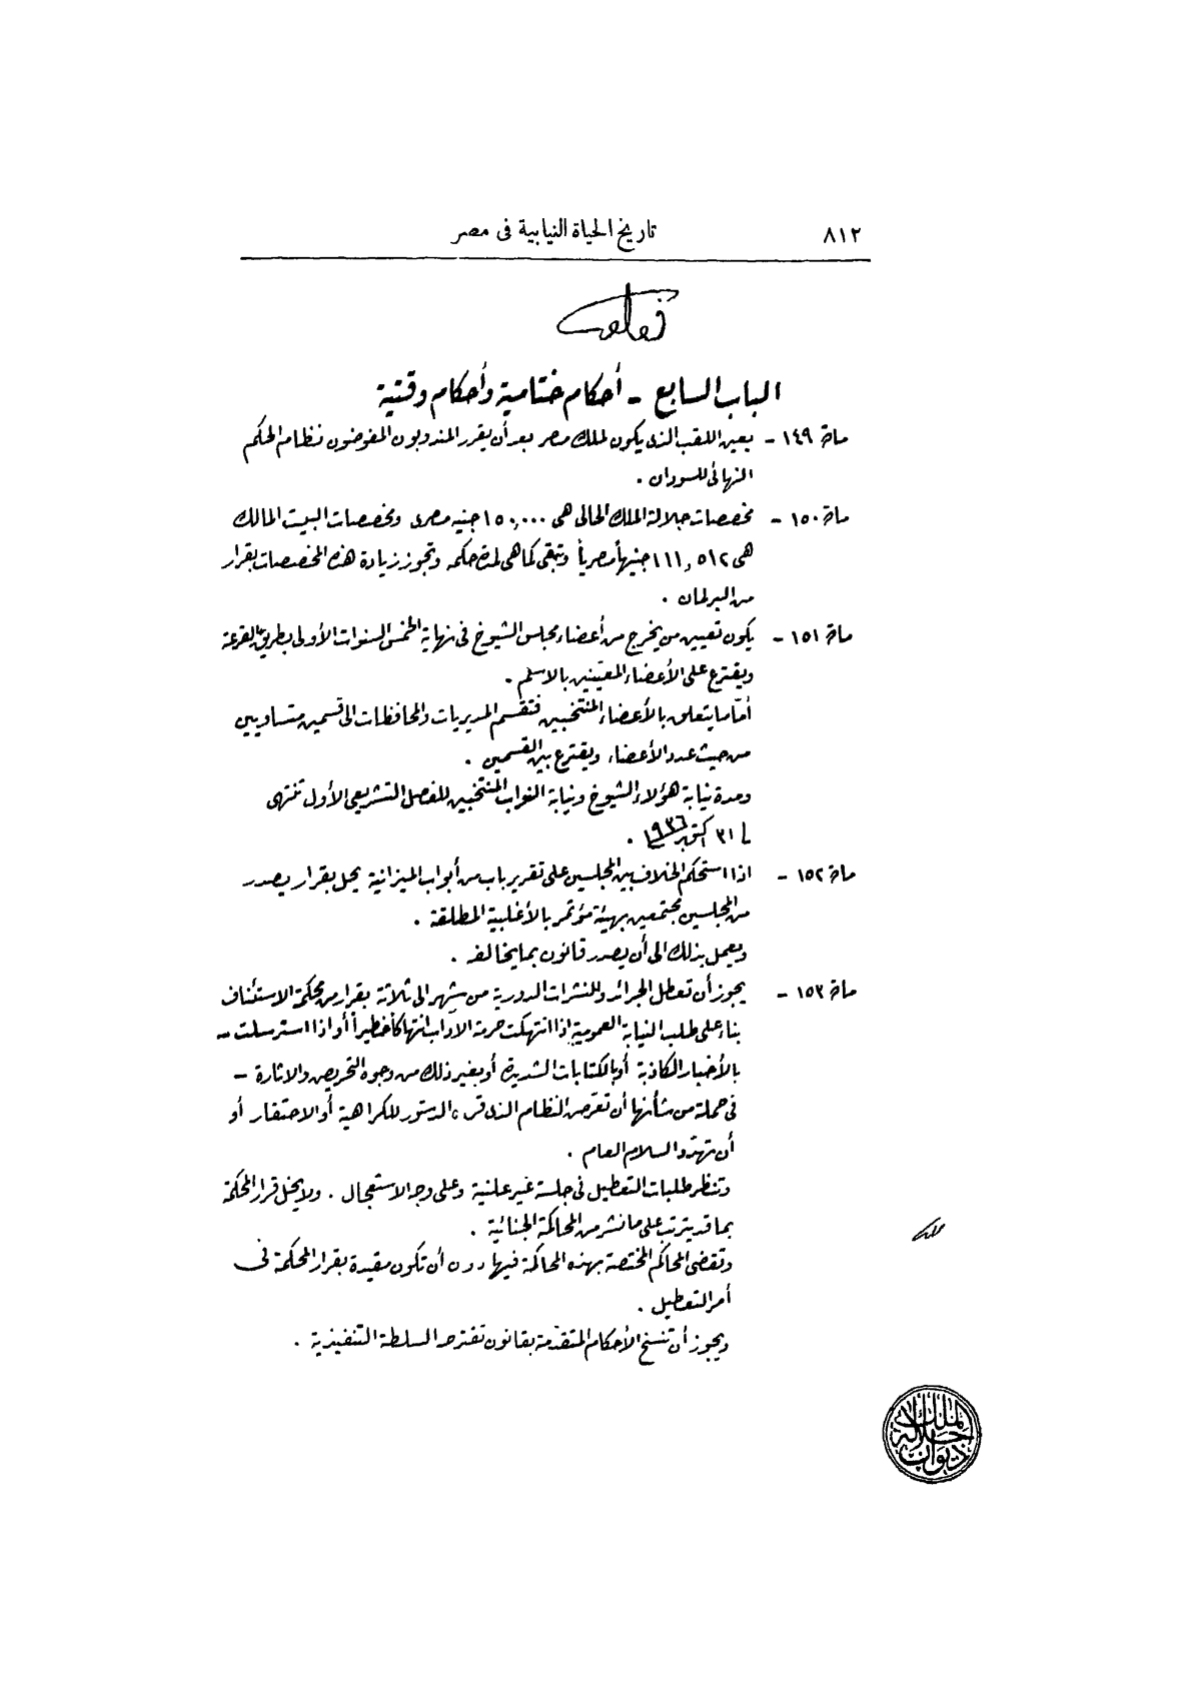 ٨١٢
تاريخ الحياة النيابية فى مصر
الباب السابع - أحكام ختامية وأحكام وقتية
مادة ١٤٩ - يعين اللقب الذى يكون لملك مصر بعد أن يقرر المندوبون المفوضون نظام الحكم
النهائى للسودان .
مادة ١٥٠ - مخصصات جلالة الملك الحالى هى ١٥٠,٠٠٠ جنيه مصرى ومخصصات البيت المالك
هى ١١١,٥١٢ جنيهاً مصرياً وتبقى كما هى لمدة حكمه وتجوز زيادة هذه المخصصات بقرار
من البرلمان .
مادة ١٥١ - يكون تعيين من يخرج من أعضاء مجلس الشيوخ فى نهاية الخمس السنوات الأولى بطريق القرعة
ويقترع على الأعضاء المعيّنين بالاسم .
أمّا ما يتعلق بالأعضاء المنتخبين فتقسم المديريات والمحافظات الى قسمين متساويين
من حيث عدد الأعضاء ويقترع بين القسمين .
ومدة نيابة هؤلاء الشيوخ ونيابة النواب المنتخبين للفصل التشريعى الأول تنتهى
فى ٣١ اكتوبر ١٩٣٦ .
مادة ١٥٢ - اذا استحكم الخلاف بين المجلسين على تقرير باب من أبواب الميزانية يحل بقرار يصدر
من المجلسين مجتمعين بهيئة مؤتمر بالأغلبية المطلقة .
ويعمل بذلك الى أن يصدر قانون بما يخالفه .
مادة ١٥٣ - يجوز أن تعطل الجرائد والنشرات الدورية من شهر الى ثلاثة بقرار من محكمة الاستئناف
بناء على طلب النيابة العمومية إذا انتهكت حرمة الآداب انتهاكاً خطيراً أو اذا استرسلت -
بالأخبار الكاذبة أو بالكتابات الشديدة أو بغير ذلك من وجوه التحريض والاثارة -
فى حملة من شأنها أن تعرّض النظام الذى قرره الدستور للكراهية أو الاحتقار أو
أن تهدّد السلام العام .
وتنظر طلبات التعطيل فى جلسة غير علنية وعلى وجه الاستعجال . ولا يخل قرار المحكمة
بما قد يترتب على ما نشر من المحاكمة الجنائية .
وتقضى المحاكم المختصة بهذه المحاكمة فيها دون أن تكون مقيدة بقرار المحكمة فى
أمر التعطيل .
ويجوز أن تنسخ الأحكام المتقدّمة بقانون تقترحه السلطة التنفيذية .
ديوان جلالة الملك